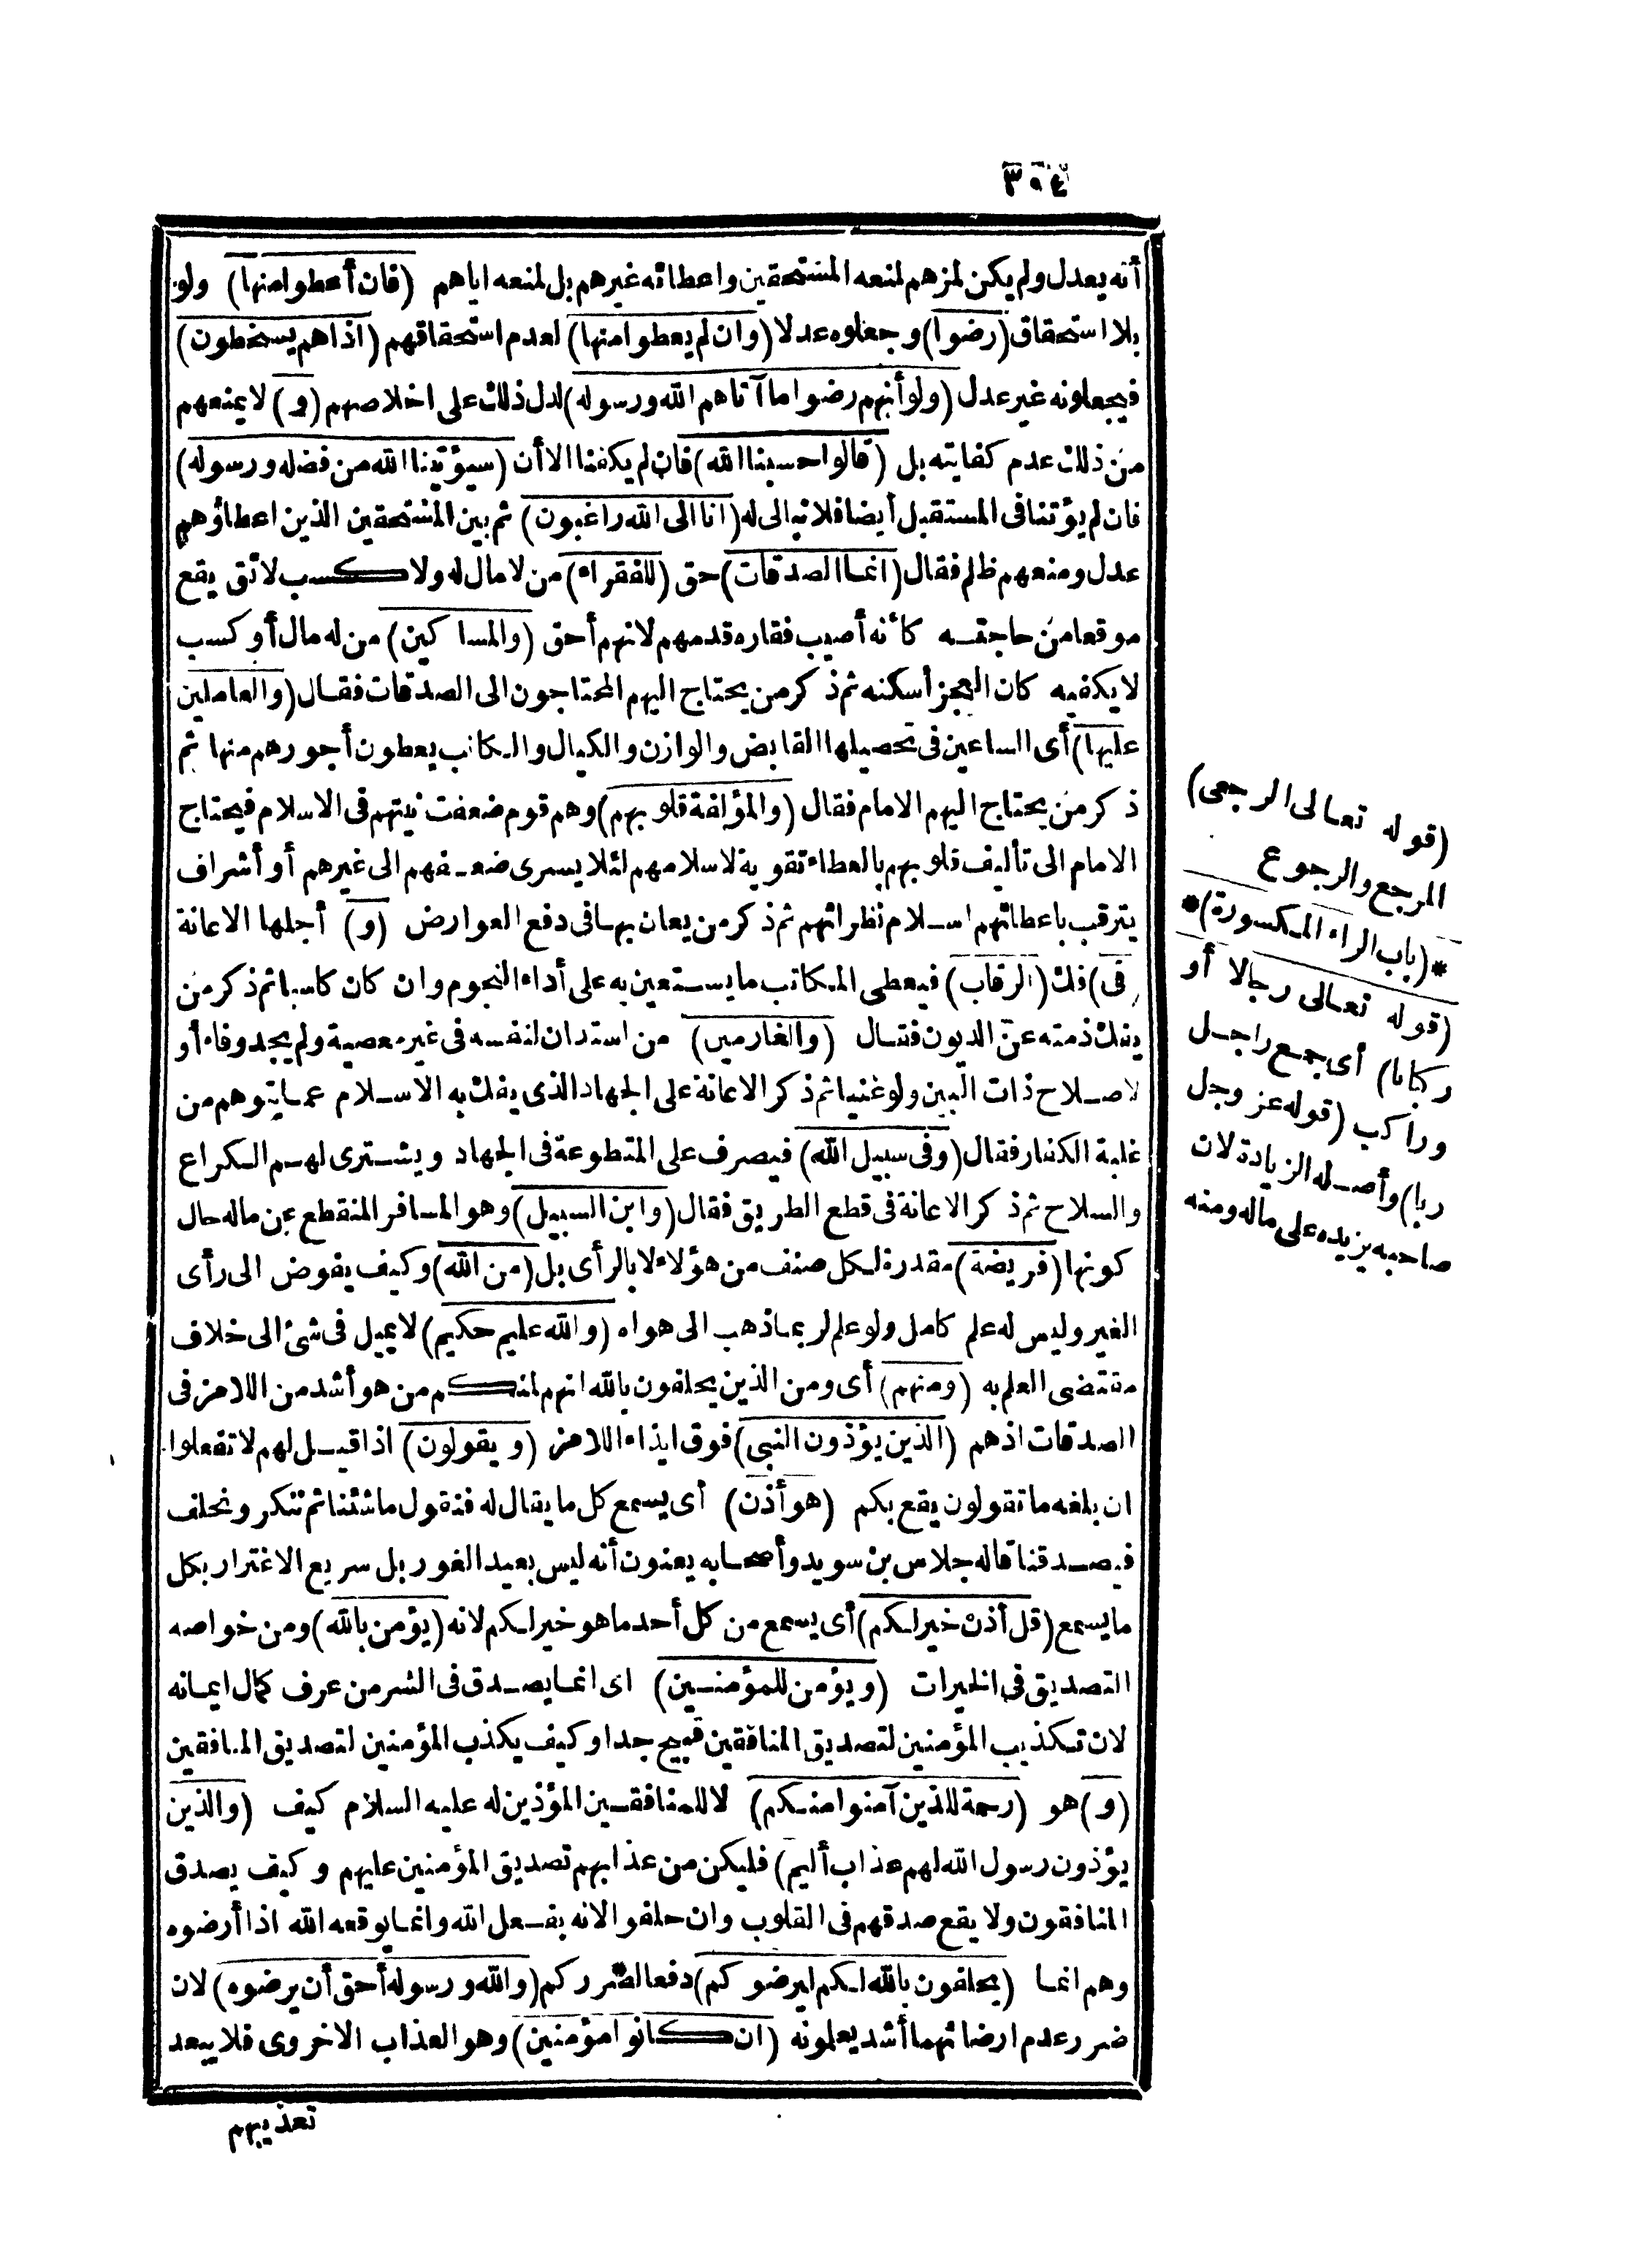 ٣٠٤
أنه يعدل ولم يكن لمزهم لمنعه المستحقين واعطائه غيرهم بل لمنعه اياهم (فان أعطوا منها) ولو
بلا استحقاق (رضوا) وجعلوه عدلا (وان لم يعطوا منها) لعدم استحقاقهم (اذا هم يسخطون)
فيجعلونه غير عدل (ولو أنهم رضوا ما آتاهم الله ورسوله) لدل ذلك على اخلاصهم (و) لا يمنعهم
من ذلك عدم كفايته بل (قالوا حسبنا الله) فان لم يكفنا الا أن (سيؤتينا الله من فضله ورسوله)
فان لم يؤتنا فى المستقبل أيضا فلا نبالى له (انا الى الله راغبون) ثم بين المستحقين الذين اعطاؤهم
عدل ومنعهم ظلم فقال (انما الصدقات) حق (للفقراء) من لا مال له ولا كسب لائق يقع
موقعا من حاجته كأنه أصيب فقاره قدمهم لانهم أحق (والمساكين) من له مال أو كسب
لا يكفيه كان العجز أسكنه ثم ذكر من يحتاج اليهم المحتاجون الى الصدقات فقال (والعاملين
عليها) أى الساعين فى تحصيلها القابض والوازن والكيال والكاتب يعطون أجورهم منها ثم
ذكر من يحتاج اليهم الامام فقال (والمؤلفة قلوبهم) وهم قوم ضعفت نيتهم فى الاسلام فيحتاج
الامام الى تأليف قلوبهم بالعطاء تقوية لاسلامهم لئلا يسرى ضعفهم الى غيرهم أو أشراف
يترقب باعطائهم اسلام نظرائهم ثم ذكر من يعان بها فى دفع العوارض (و) أجلها الاعانة
(فى) فك (الرقاب) فيعطى المكاتب ما يستعين به على أداء النجوم وان كان كاسبا ثم ذكر من
يفك ذمته عن الديون فقال (والغارمين) من استدان لنفسه فى غير معصية ولم يجد وفاء أو
لاصلاح ذات البين ولو غنيا ثم ذكر الاعانة على الجهاد الذى يفك به الاسلام عما يتوهم من
غلبة الكفار فقال (وفى سبيل الله) فيصرف على المتطوعة فى الجهاد ويشترى لهم الكراع
والسلاح ثم ذكر الاعانة فى قطع الطريق فقال (وابن السبيل) وهو المسافر المنقطع عن ماله حال
كونها (فريضة) مقدرة لكل صنف من هؤلاء لا بالرأى بل (من الله) وكيف يفوض الى رأى
الغير وليس له علم كامل ولو علم لربما ذهب الى هواه (والله عليم حكيم) لا يميل فى شئ الى خلاف
مقتضى العلم به (ومنهم) أى ومن الذين يحلفون بالله انهم لمنكم من هو أشد من اللامز فى
الصدقات اذ هم (الذين يؤذون النبى) فوق ايذاء اللامز (ويقولون) اذا قيل لهم لا تفعلوا
ان بلغه ما تقولون يقع بكم (هو أذن) أى يسمع كل ما يقال له فنقول ما شئنا ثم ننكر ونحلف
فيصدقنا قاله جلاس بن سويد وأصحابه يعنون أنه ليس بعيد الغور بل سريع الاغترار بكل
ما يسمع (قل أذن خير لكم) أى يسمع من كل أحد ما هو خير لكم لانه (يؤمن بالله) ومن خواصه
التصديق فى الخيرات (ويؤمن للمؤمنين) اى انما يصدق فى الشر من عرف كمال ايمانه
لان تكذيب المؤمنين لتصديق المنافقين قبيح جدا وكيف يكذب المؤمنين لتصديق المنافقين
(و) هو (رحمة للذين آمنوا منكم) لا للمنافقين المؤذين له عليه السلام كيف (والذين
يؤذون رسول الله لهم عذاب أليم) فليكن من عذابهم تصديق المؤمنين عليهم وكيف يصدق
المنافقون ولا يقع صدقهم فى القلوب وان حلفوا لانه بفعل الله وانما يوقعه الله اذا أرضوه
وهم انما (يحلفون بالله لكم ليرضوكم) دفعا لضرركم (والله ورسوله أحق أن يرضوه) لان
ضرر عدم ارضائهما أشد يعلمونه (ان كانوا مؤمنين) وهو العذاب الاخروى فلا يبعد
تعذيبهم
(قوله تعالى الرجعى)
المرجع والرجوع
*(باب الراء المكسورة)*
(قوله تعالى رجالا أو
ركبانا) أى جمع راجل
وراكب (قوله عز وجل
ربا) وأصله الزيادة لان
صاحبه يزيده على ماله ومنه